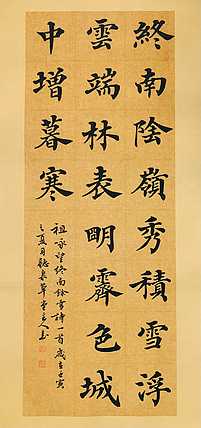 終南陰嶺秀積雪浮
雲端林表明霽色城
中增暮寒
祖詠望終南餘雪詩一首歲在壬寅
之夏月聽泉草堂主人書